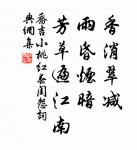 香消翠減
雨昏煙暗
芳草遍江南
喬吉小桃紅春閨怨詞
典網集